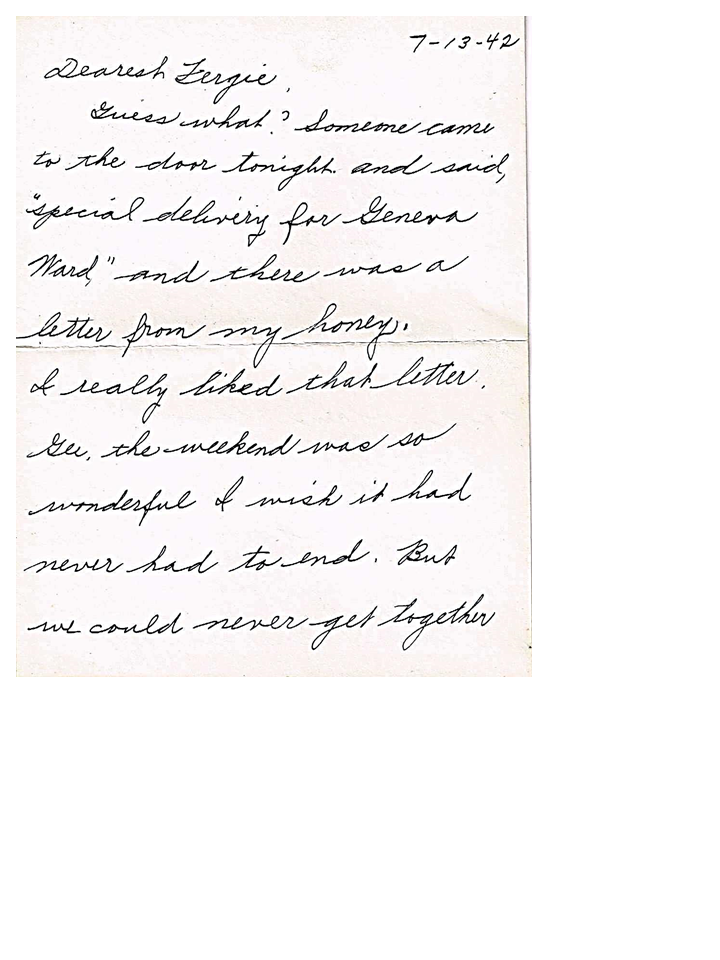 7-13-42
Dearest Fergie,
Guess what? Someone came
to the door tonight. and said,
"special delivery for Geneva
Ward," and there was a
letter from my honey.
I really liked that letter.
Gee, the weekend was so
wonderful I wish it had
never had to end. But
we could never get together